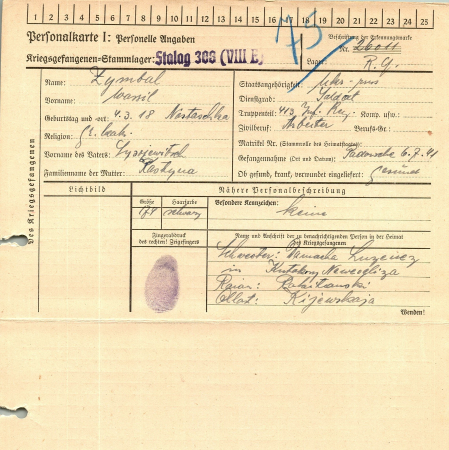 1 2 3 4 5 6 7 8 9 10 11 12 13 14 15 16 17 18 19 20 21 22 23 24 25
Personalkarte I: Personelle Angaben
Kriegsgefangenen-Stammlager: Stalag 308 (VIII E)
75
Beschriftung der Erkennungsmarke
Nr. 26011
Lager:
Des Kriegsgefangenen
Name: Zymbal
Vorname: Wasil
Geburtstag und -ort: 4.3.18 Nastaschka
Religion:
Vorname des Vaters:
Familienname der Mutter:
Staatsangehörigkeit: Ukr.-rus
Dienstgrad: Soldat
Truppenteil: 413 Inf. Reg. Komp. usw.:
Zivilberuf: Arbeiter Berufs-Gr.:
Matrikel Nr. (Stammrolle des Heimatstaates):
Gefangennahme (Ort und Datum): 6.7.41
Ob gesund, krank, verwundet eingeliefert: gesund
Lichtbild
Nähere Personalbeschreibung
Größe
Haarfarbe schwarz
Besondere Kennzeichen: keine
Fingerabdruck des rechten! Zeigefingers
Name und Anschrift der zu benachrichtigenden Person in der Heimat des Kriegsgefangenen
Schwester:
in
Raion:
Oblast: Kijewskaja
Wenden!